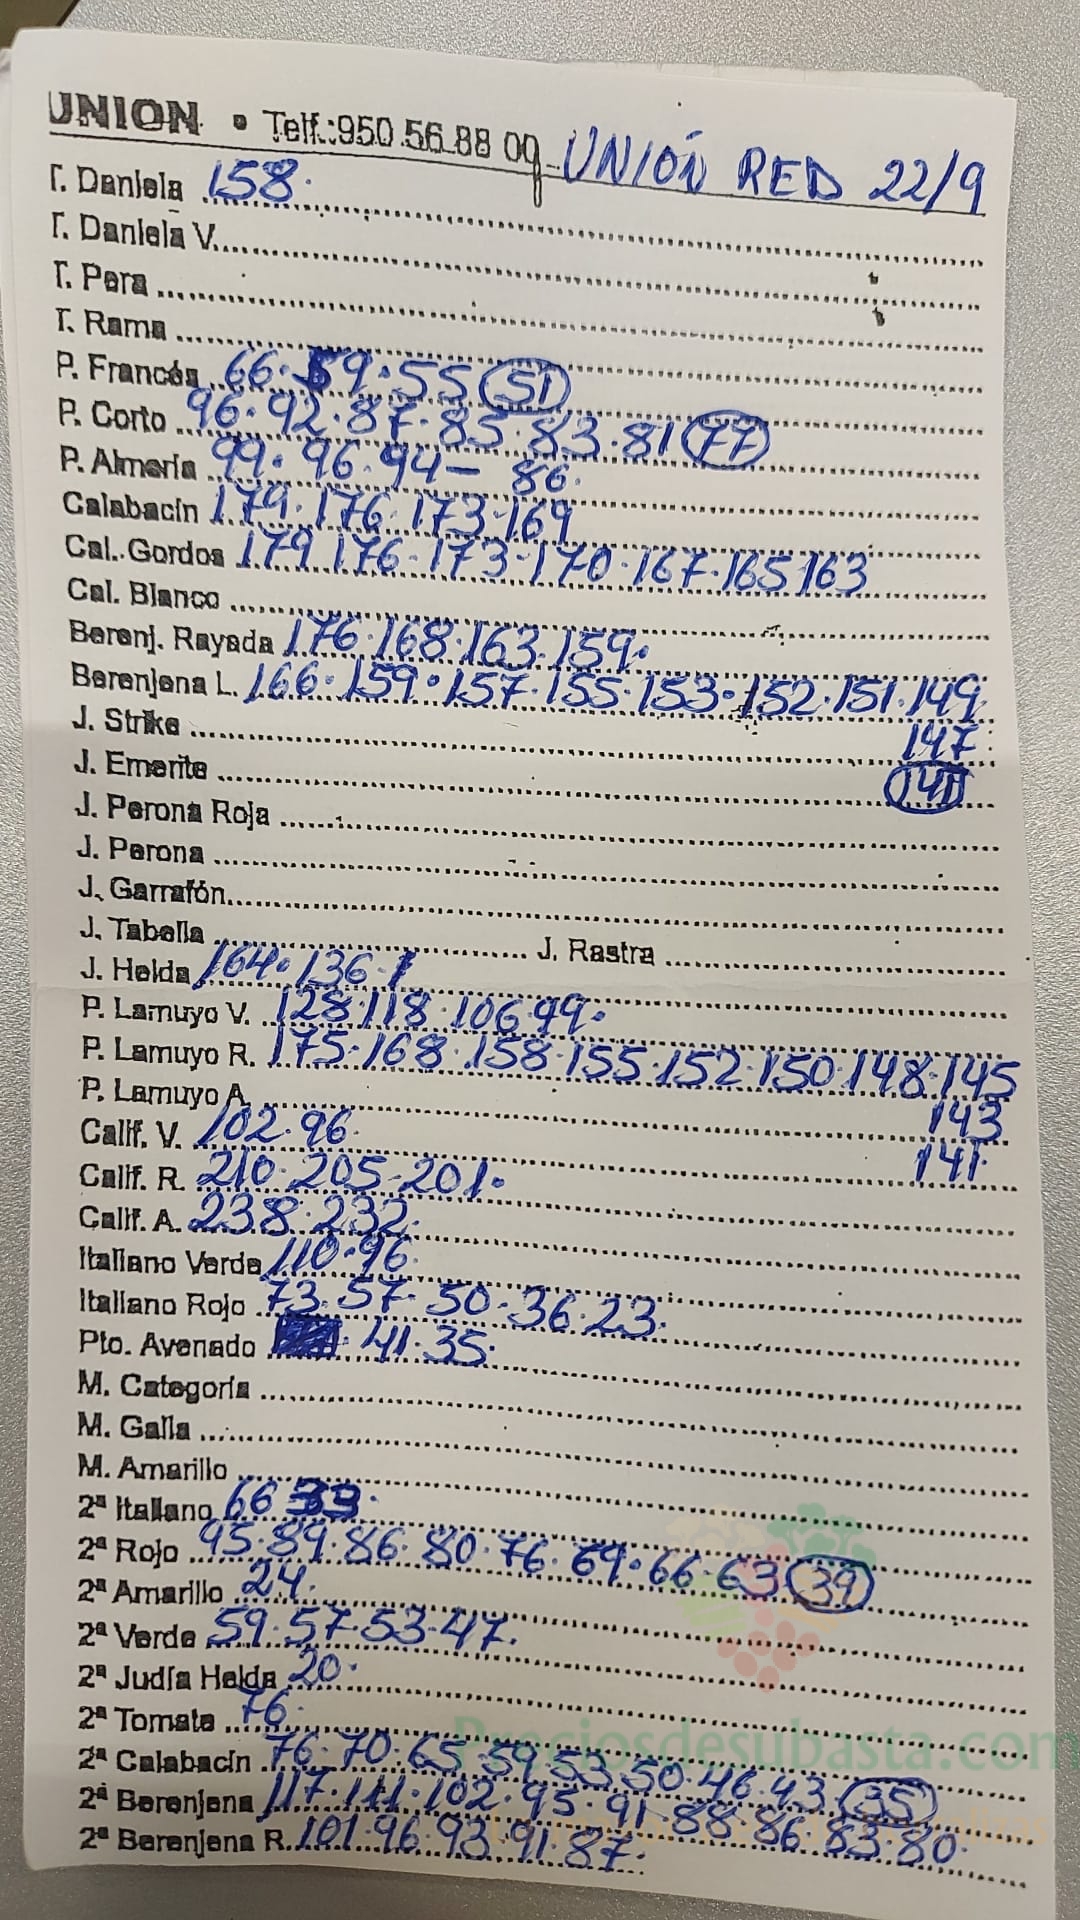 UNION • Telf.:950 56 88 00 UNIÓN RED 22/9
T. Daniela 158.
T. Daniela V.
T. Pera
T. Rama
P. Francés 66. 59. 55 51
P. Corto 96. 92. 87. 85. 83. 81 77
P. Almería 99. 96. 94 - 86.
Calabacín 179. 176. 173. 169
Cal. Gordos 179 176. 173. 170. 167. 165 163
Cal. Blanco
Berenj. Rayada 176. 168. 163. 159.
Berenjena L. 166. 159. 157. 155. 153. 152. 151. 149.
J. Strike 147
J. Emerite
J. Perona Roja
J. Perona
J. Garrafón
J. Tabella J. Rastra
J. Helda 164. 136.
P. Lamuyo V. 128. 118. 106 99.
P. Lamuyo R. 175. 168. 158. 155. 152. 150. 148. 145
P. Lamuyo A. 143
Calif. V. 102. 96. 141.
Calif. R. 210. 205. 201.
Calif. A. 238. 232.
Italiano Verde 110. 96.
Italiano Rojo 73. 57. 50. 36. 23.
Pto. Avenado 41. 35.
M. Categoría
M. Galla
M. Amarillo
2ª Italiano 66 33.
2ª Rojo 95. 89. 86. 80. 76. 69. 66. 63 39
2ª Amarillo 24.
2ª Verde 59. 57. 53. 47.
2ª Judía Helda 20.
2ª Tomate 76.
Preciosdesubasta.com
2ª Calabacín 76. 70. 65. 59. 53. 50. 46. 43 35
2ª Berenjena 117. 111. 102. 95. 91. 88. 86. 83. 80.
2ª Berenjena R. 101. 96. 93. 91. 87.